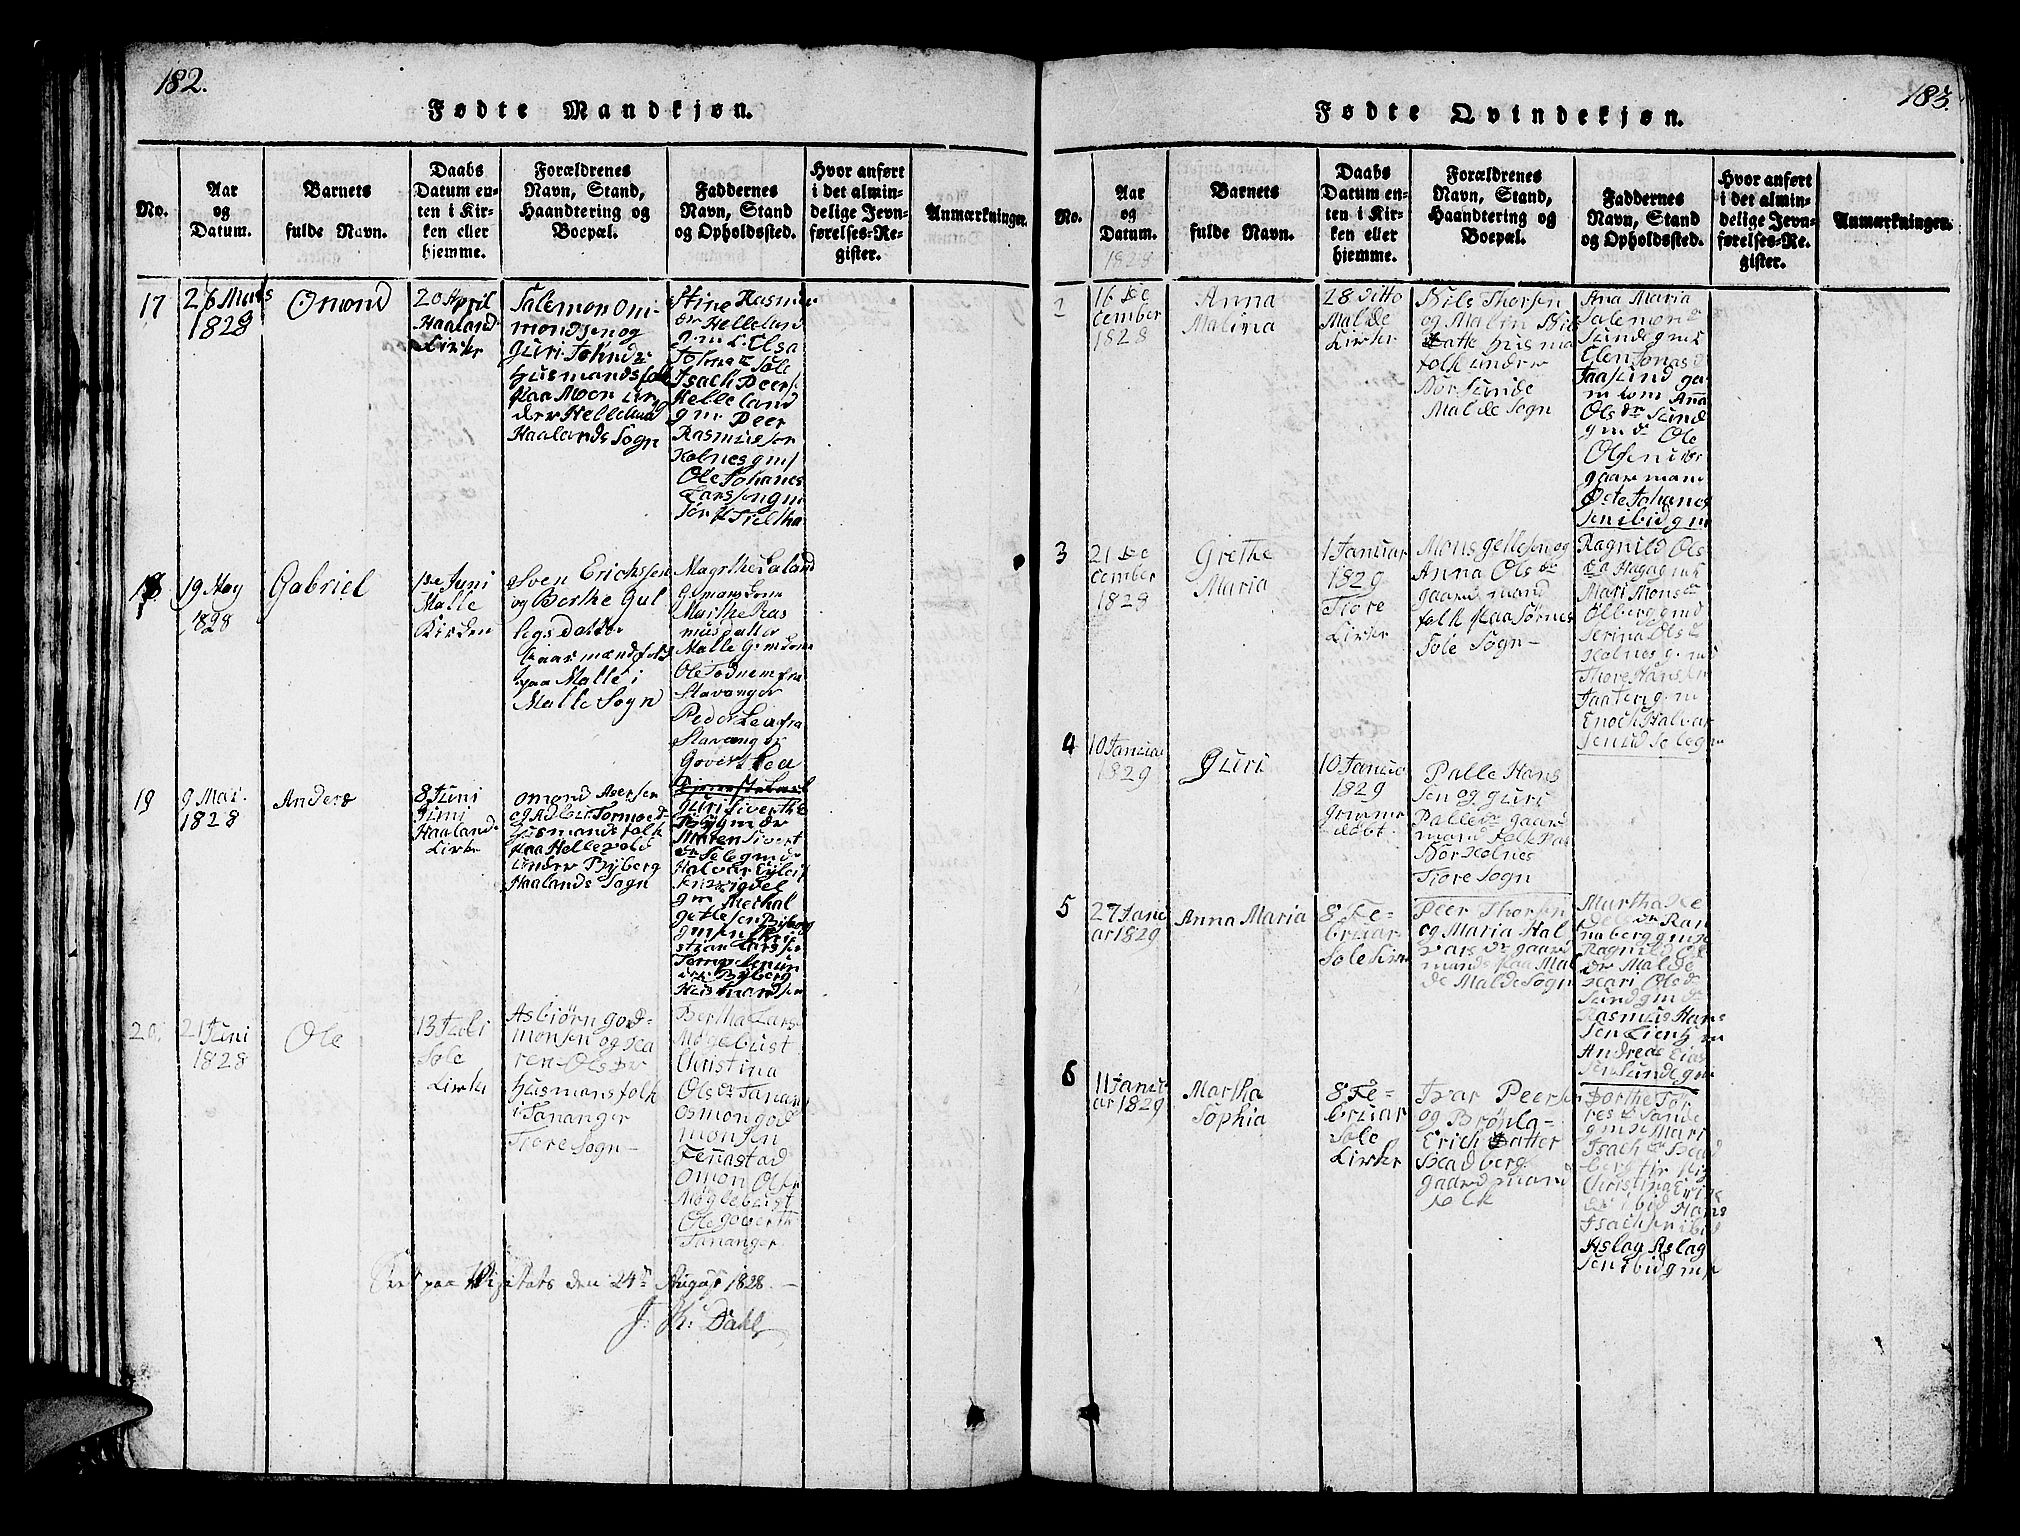 182.
Fødte Mandkjøn.
No.
Aar
og
Datum.
Barnets
fulde Navn.
Daabs
Datum en-
ten i Kir-
ken eller
hjemme.
Forældrenes
Navn, Stand,
Haandtering og
Boepæl.
Faddernes
Navn, Stand
og Opholdssted.
Hvor anført
i det almin-
delige Jevn-
førelses-Re-
gister.
Anmærkninger.
17
26 Mars
1828
Omond
20 April
Haaland
Kirke
Salemon Om-
mondsen og
Guri Johnds
Husmandsfolk
paa Moen un
der Helleland
Haalands Sogn
Stine Rasmus
dr Helleland
Josne dr Sole
Isach Peers
Helleland
gm Peer
Rasmussen
Holnes gms
Ole Johanes
Larssen gm
18
19 May
1828
Gabriel
1de Juni
Malle
Kirken
Sven Erichssen
og Berthe Gul
legsdatter
Gaarmændfolk
paa Malle i
Malle Sogn
Magrthe Laland
Marthe Ras
musdatter
Malle
Ole Todnem fra
Stavanger
Peder Lea fra
Stavanger
Govert Lea
19
9 Mai
1828
Anders
8 Juni
Haaland
Kirke
Omond Asersen
Husmandsfolk
paa Hellevold
under Byberg
Haalands Sogn
Guri Siverths
Maren Sivert
dr Sele gmd
Halvar Eyleif
gm Mechal
Getlesen Byberg
stian Larssen
Byberg
Husmandsen
20.
21 Juni
1828
Ole
13 Juli
Sole
Kirke
Asbiørn God-
monsen og Ka
ren Olsdr
Husmansfolk
i Tananger
Tiore Sogn
Bertha Lars
Møglebust
Christina
Ols dr Tanan
Osmon God
monsen
Jennastad
Omon Ols
Møglebust
Ole Goverth
Tananger
Seet paa Visitats den 24de August 1828.
J. Th. Dahl
183
Fødte Qvindekjøn.
No.
Aar
og
Datum.
1828
Barnets
fulde Navn.
Daabs
Datum en-
ten i Kir-
ken eller
hjemme.
Forældrenes
Navn, Stand,
Haandtering og
Boepæl.
Faddernes
Navn, Stand
og Opholdssted.
Hvor anført
i det almin-
delige Jevn-
førelses-Re-
gister.
Anmærkningen.
2
16 De
cember
1828
Anna
Malina
28 Ditto
Malde
Kirke
Nils Thorsen
og Malin Nils
datte Husma
folk under
Nor Sunde
Malde Sogn
Ana Maria
Salemons
Sunde gmd
Elen Jonas d
Jaasund ga
m kom Ana
Ols dr Sund
gm dr Ole
Olsen
gaarmand
Oste Johanes
sen ibid gm
3
21 De
cember
1828
Grethe
Maria
1 Januar
1829
Tiore
Kirke
Mons Gellesen og
Anna Ols dr
gaard mand
folk paa Sørnes
Sole Sogn
Ragnild Ols
da Haga gmd
Mari Mons dr
Ølberg gmd
Serina Ols d
Holnes g. md
Thore Hansen
Jaaten g. m
Enoch Halvar
4
10 Januar
1829
Guri
10 Januar
1829
Palle Hans
sen og Guri
Palle dr gaar
mand folk paa
Nor Holnes
Tiore Sogn
5
27 Janu
ar 1829
Anna Maria
8 Fe-
bruar
Sole Kirke
Peer Thorsen
og Maria Hal
vars dr gaar
mands paa Mal
de Malde Sogn
Martha
dr Ran
naberg
Ragnild Ols
dr Malde
Kari Ols dr
Sund gm dr
Rasmus Hans
Andreas Eias
sen Sunde gm
6
11 Janu
ar 1829
Martha
Sophia
8 Fe-
bruar
Sole
Kirke
Ivar Peersen
og Brønla-
Erich datter
Readberg
gaard man
folk
Dorthe To
res dr Sande
Isach dr Read
berg
Christina
dr ibid Hans
Isachsen ibid
Aslag Aslag
sen ibid gmf